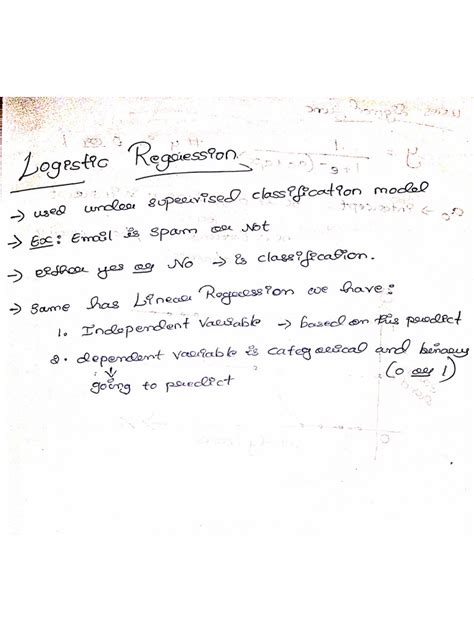 Logistic Regression
→ used under supervised classification model
→ Ex: Email is spam or Not
→ either yes or No → is classification.
→ Same has Linear Regression we have:
1. Independent Variable → based on this predict
2. dependent variable is categorical and binary
(0 or 1)
↓
going to predict